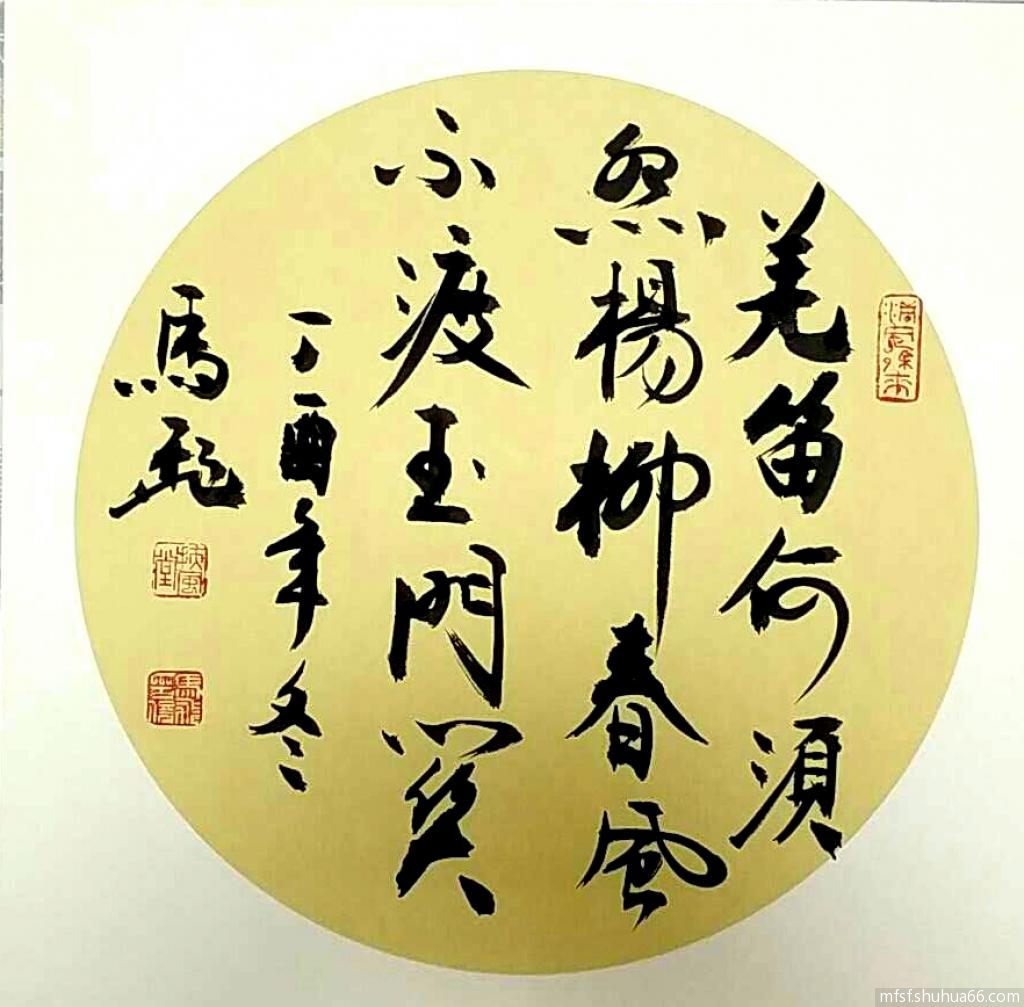 羌笛何湏
怨楊柳春風
不渡玉門關
丁酉年冬
馬
扶風堂
mfsf.shuhua66.com